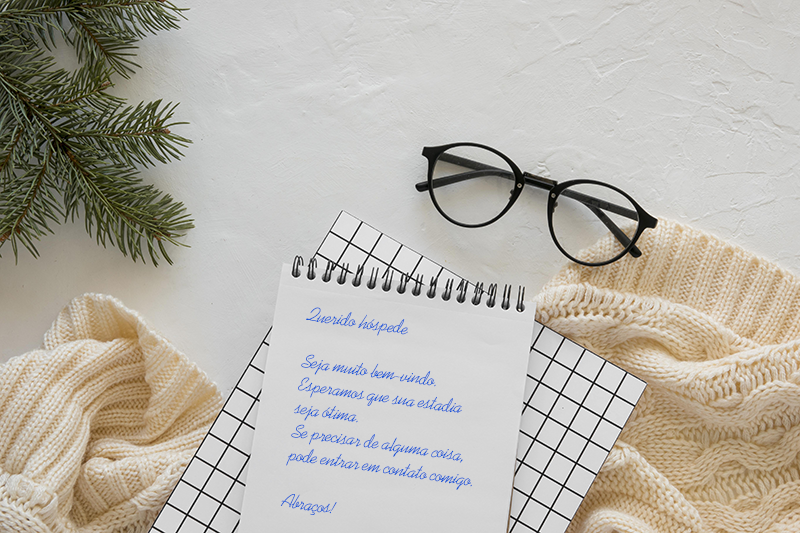 Querido hóspede
Seja muito bem-vindo.
Esperamos que sua estadia
seja ótima.
Se precisar de alguma coisa,
pode entrar em contato comigo.
Abraços!